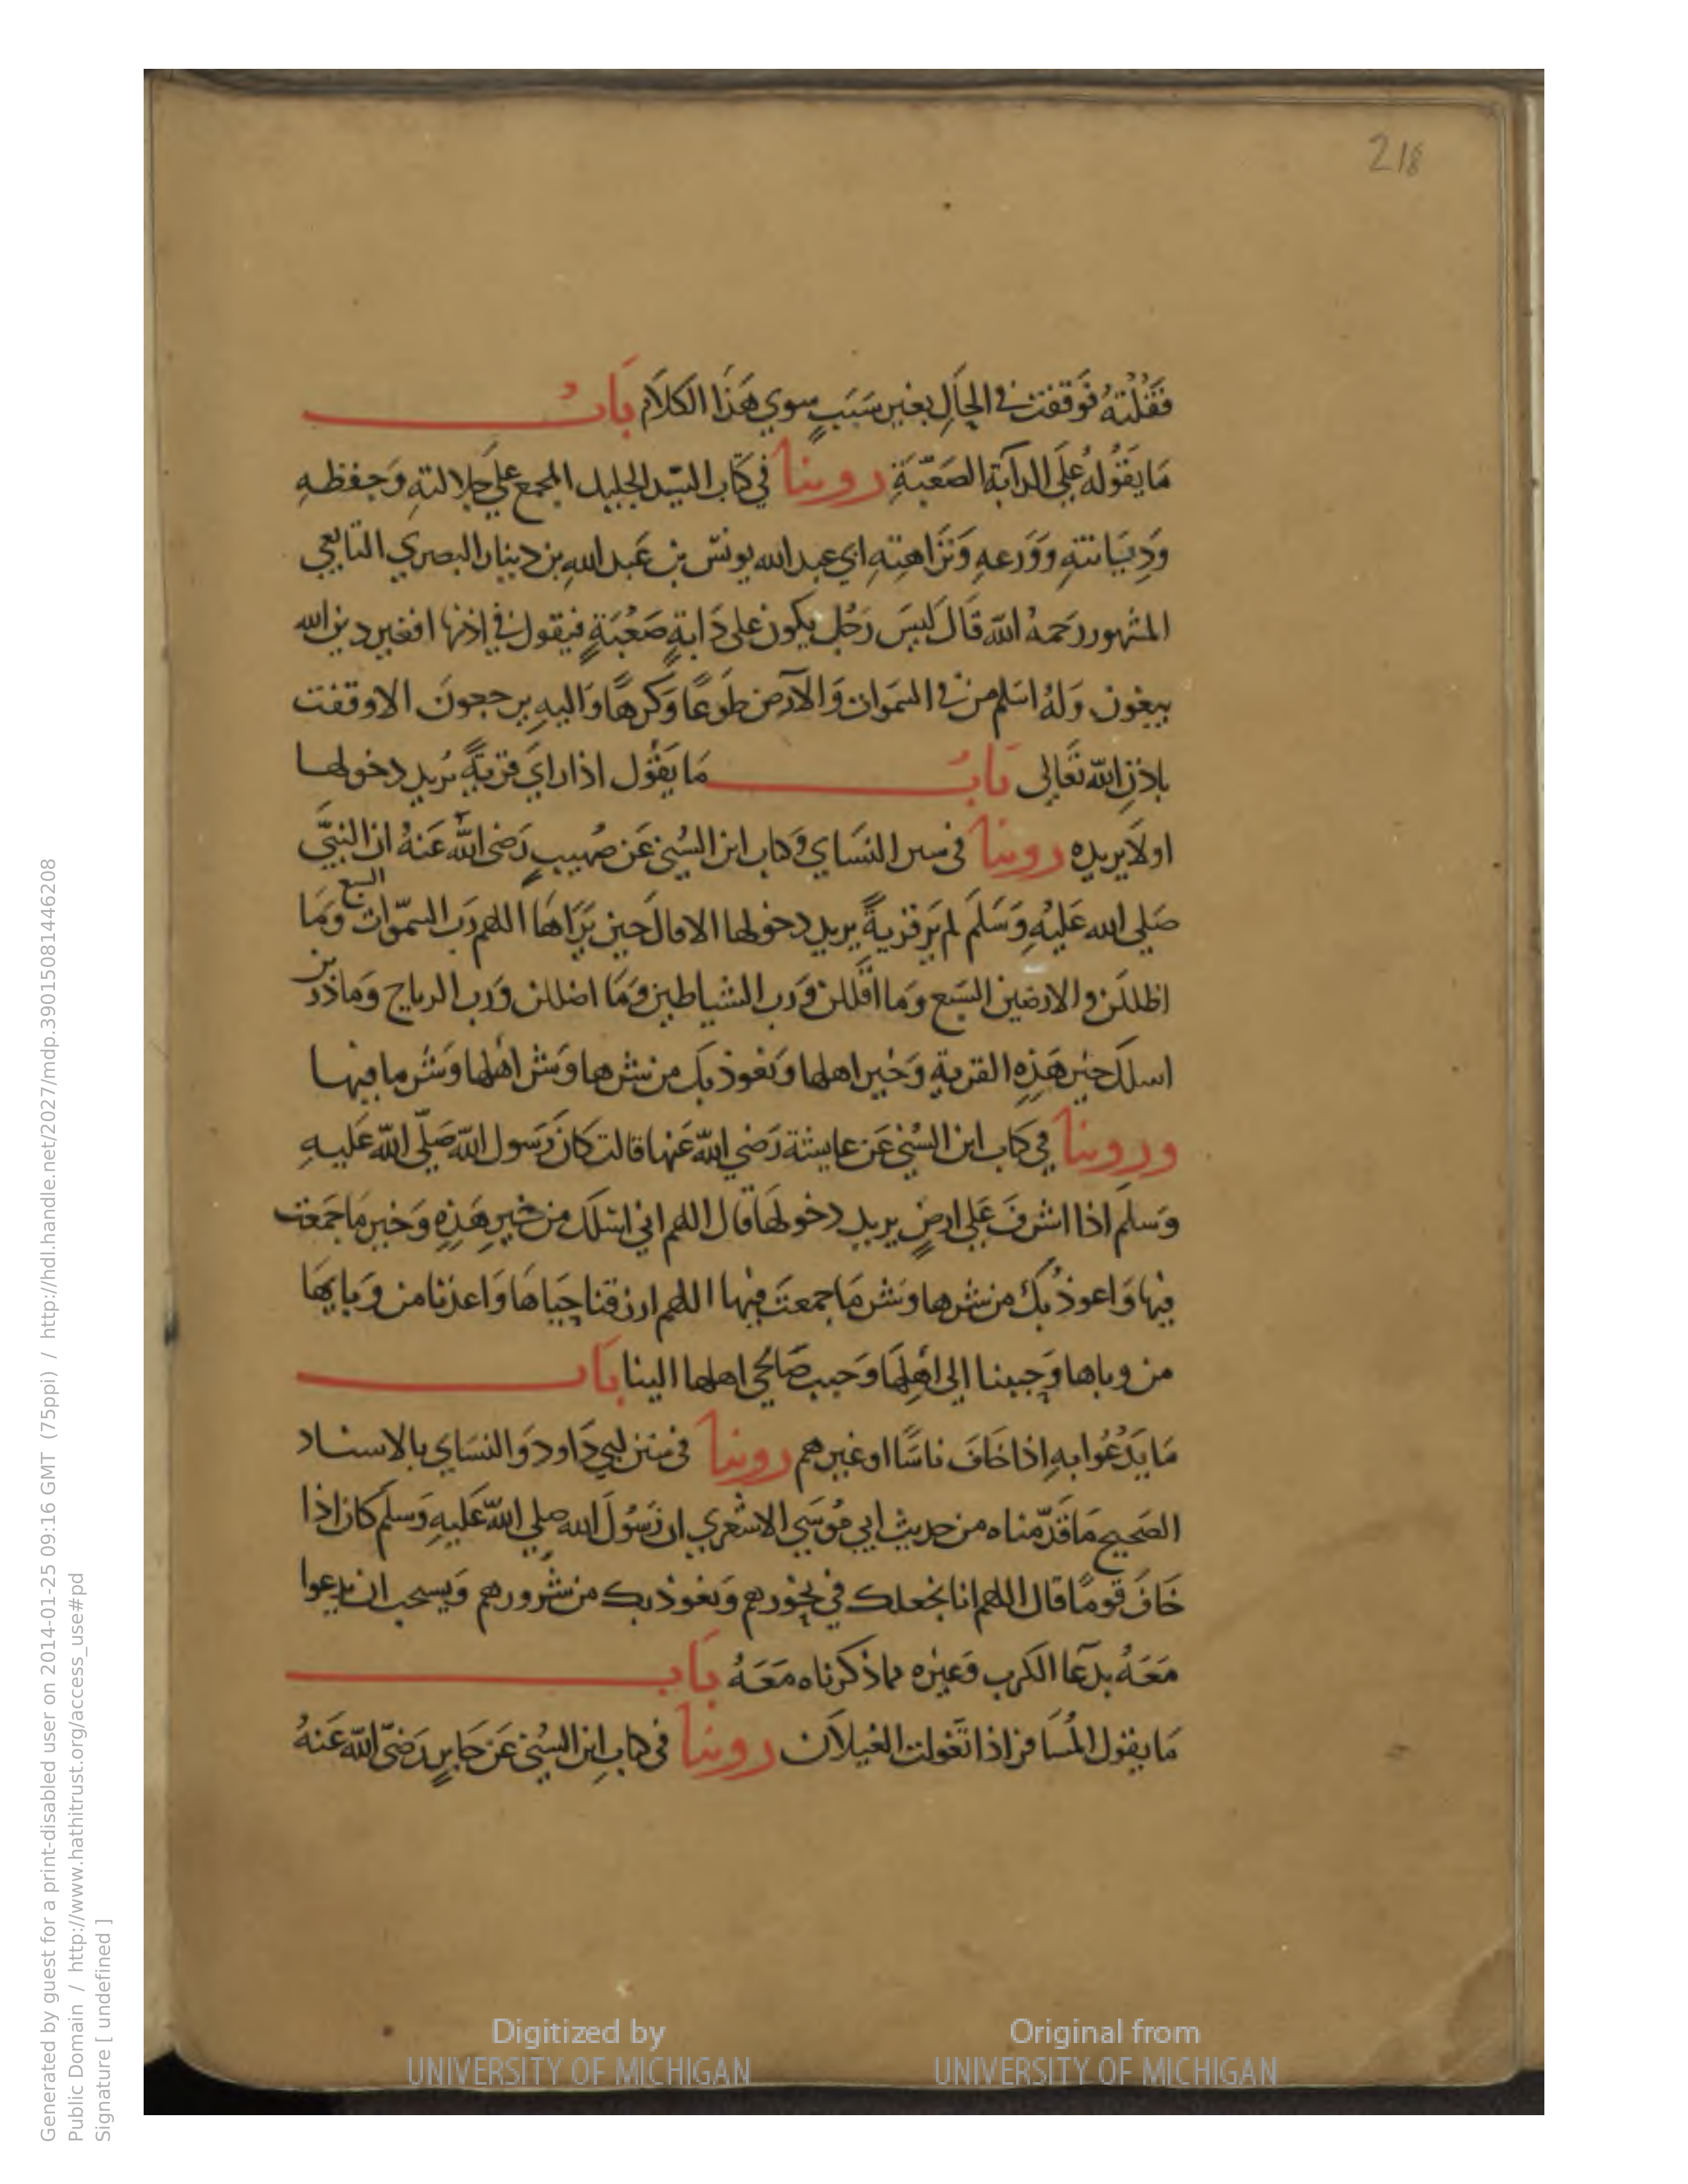 218
فَقُلْتُهُ فَوَقفت في الحَالِ بغير سَبَبٍ سوي هَذَا الكلَام بَابُ
مَا يَقُولهُ عَلَى الدآبَة الصَعّبَةِ روينا في كتَاب السّيد الجليل المجمع علي جلالتهِ وَحفظهِ
وَدِيَانتهِ وَوَرعهِ وَنَزاهتِهِ ابي عبد الله يونسّ بن عَبد اللهِ بن دينار البصري التابعي
المشهور رَحمهُ اللّه قَال لَيسَ رَجُل يكون على دَابةٍ صَعْبَةٍ فيقول في اذنها افغير دين الله
يبغون وَلهُ اسَلم من في السمَوات وَالآرض طَوعًا وَكَرهًا وَاليهِ يرجعونَ الا وقفت
باذنِ اللّه تعَالى بَابُ مَا يقُول اذا راي قريَةً يُريد دخولها
اولَا يريده روينا في سنن النسَاي وكتاب ابن السُني عَن صُهيبٍ رَضى اللّه عَنهُ ان النبيّ
صَلي الله عَليْهِ وَسَلَم لم يَر قريةً يريد دخولها الا قال حين يَرَاها اللهم رَب السمّوات السبع وَمَا
اظللَن والارضين السَبع وَما اقللن وَرب الشياطين وَمَا اضللن وَرب الرياح وَما ذرين
اسلك خير هَذِه القرية وَخير اهلها وَنعوذ بك من شرها وَشر اهلها وَشر ما فيها
وروينا في كتاب ابن السُني عَن عايشة رَضي اللّه عَنها قالت كان رَسول اللّه صَلّي اللّه عَليهِ
وَسلم اذا اشرفَ عَلي ارضٍ يريد دخولهَا قال اللهم اني اسلك من خير هَذِهِ وَخير مَا جمَعت
فيها وَاعوذ بك من شرها وشر مَا جمعتَ فيها اللهم ارزقنا حيَاهَا وَاعذنا من وَبايهَا
من وباها وَحببنا الى اهلهَا وَحبب صَالحي اهلها الينا بَاب
مَا يَدْعُوا بهِ اذا خَافَ ناسًا اوغيرهم روينا في سنن ابي دَاود وَالنسَاي بالاسناد
الصَحيح مَا قَدّمناه من حديث ابي مُوسَي الاشعري ان رَسُول الله صلي اللّه عَليهِ وَسلم كان اذا
خَافَ قومًا قال اللهم انا نجعلك في نحورهم وَنعوذ بك من شرورهم وَيسحب ان يدعوا
مَعَهُ بدعَا الكرب وَغيره مما ذكرناه مَعَهُ بَاب
مَا يقول المُسَافر اذا تَغولت الغيلَان روينا في كتاب ابن السُني عَن جَابرٍ رَضيّ اللّه عَنهُ
Digitized by UNIVERSITY OF MICHIGAN
Original from UNIVERSITY OF MICHIGAN
Generated by guest for a print-disabled user on 2014-01-25 09:16 GMT (75ppi) / http://hdl.handle.net/2027/mdp.39015081446208
Public Domain / http://www.hathitrust.org/access_use#pd
Signature [ undefined ]